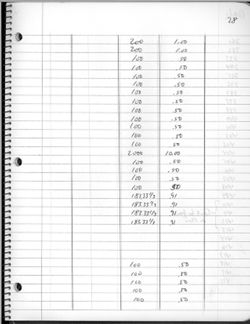 28
200 1.00
200 1.00
100 .50
100 .50
100 .50
100 .50
100 .50
100 .50
100 .50
100 .50
100 .50
100 .50
100 .50
2000 10.00
100 .50
100 .50
100 .50
100 .50
183.33⅓ .91
183.33⅓ .91
183.33⅓ .91
183.33⅓ .91
100 .50
100 .50
100 .50
100 .50
100 .50